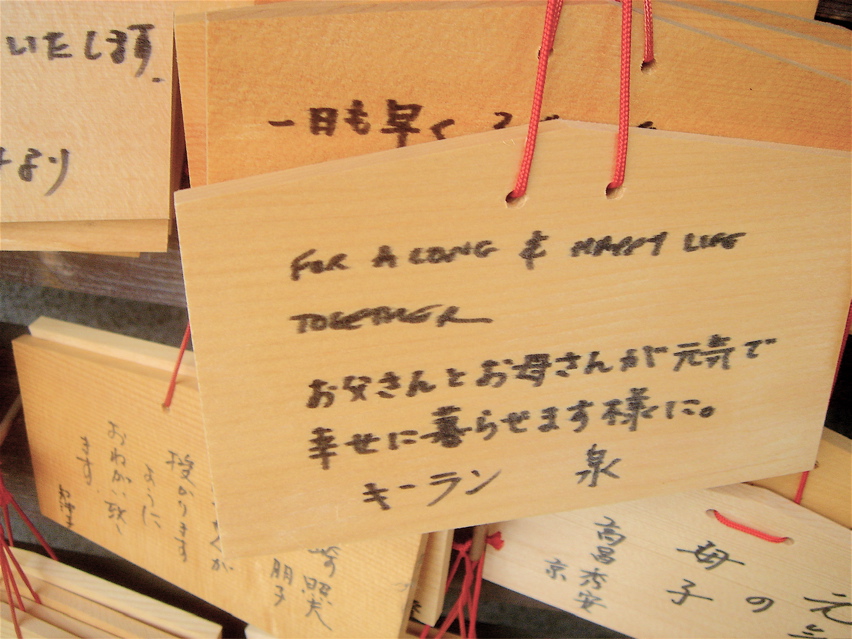 いたします。
より
一日も早く
FOR A LONG & HAPPY LIFE
TOGETHER
お父さんとお母さんが元気で
幸せに暮らせます様に。
キーラン 泉
授かります
ように、
おねがい致し
ます。
照夫
朋子
高昌秀安
京
母子
の
元気